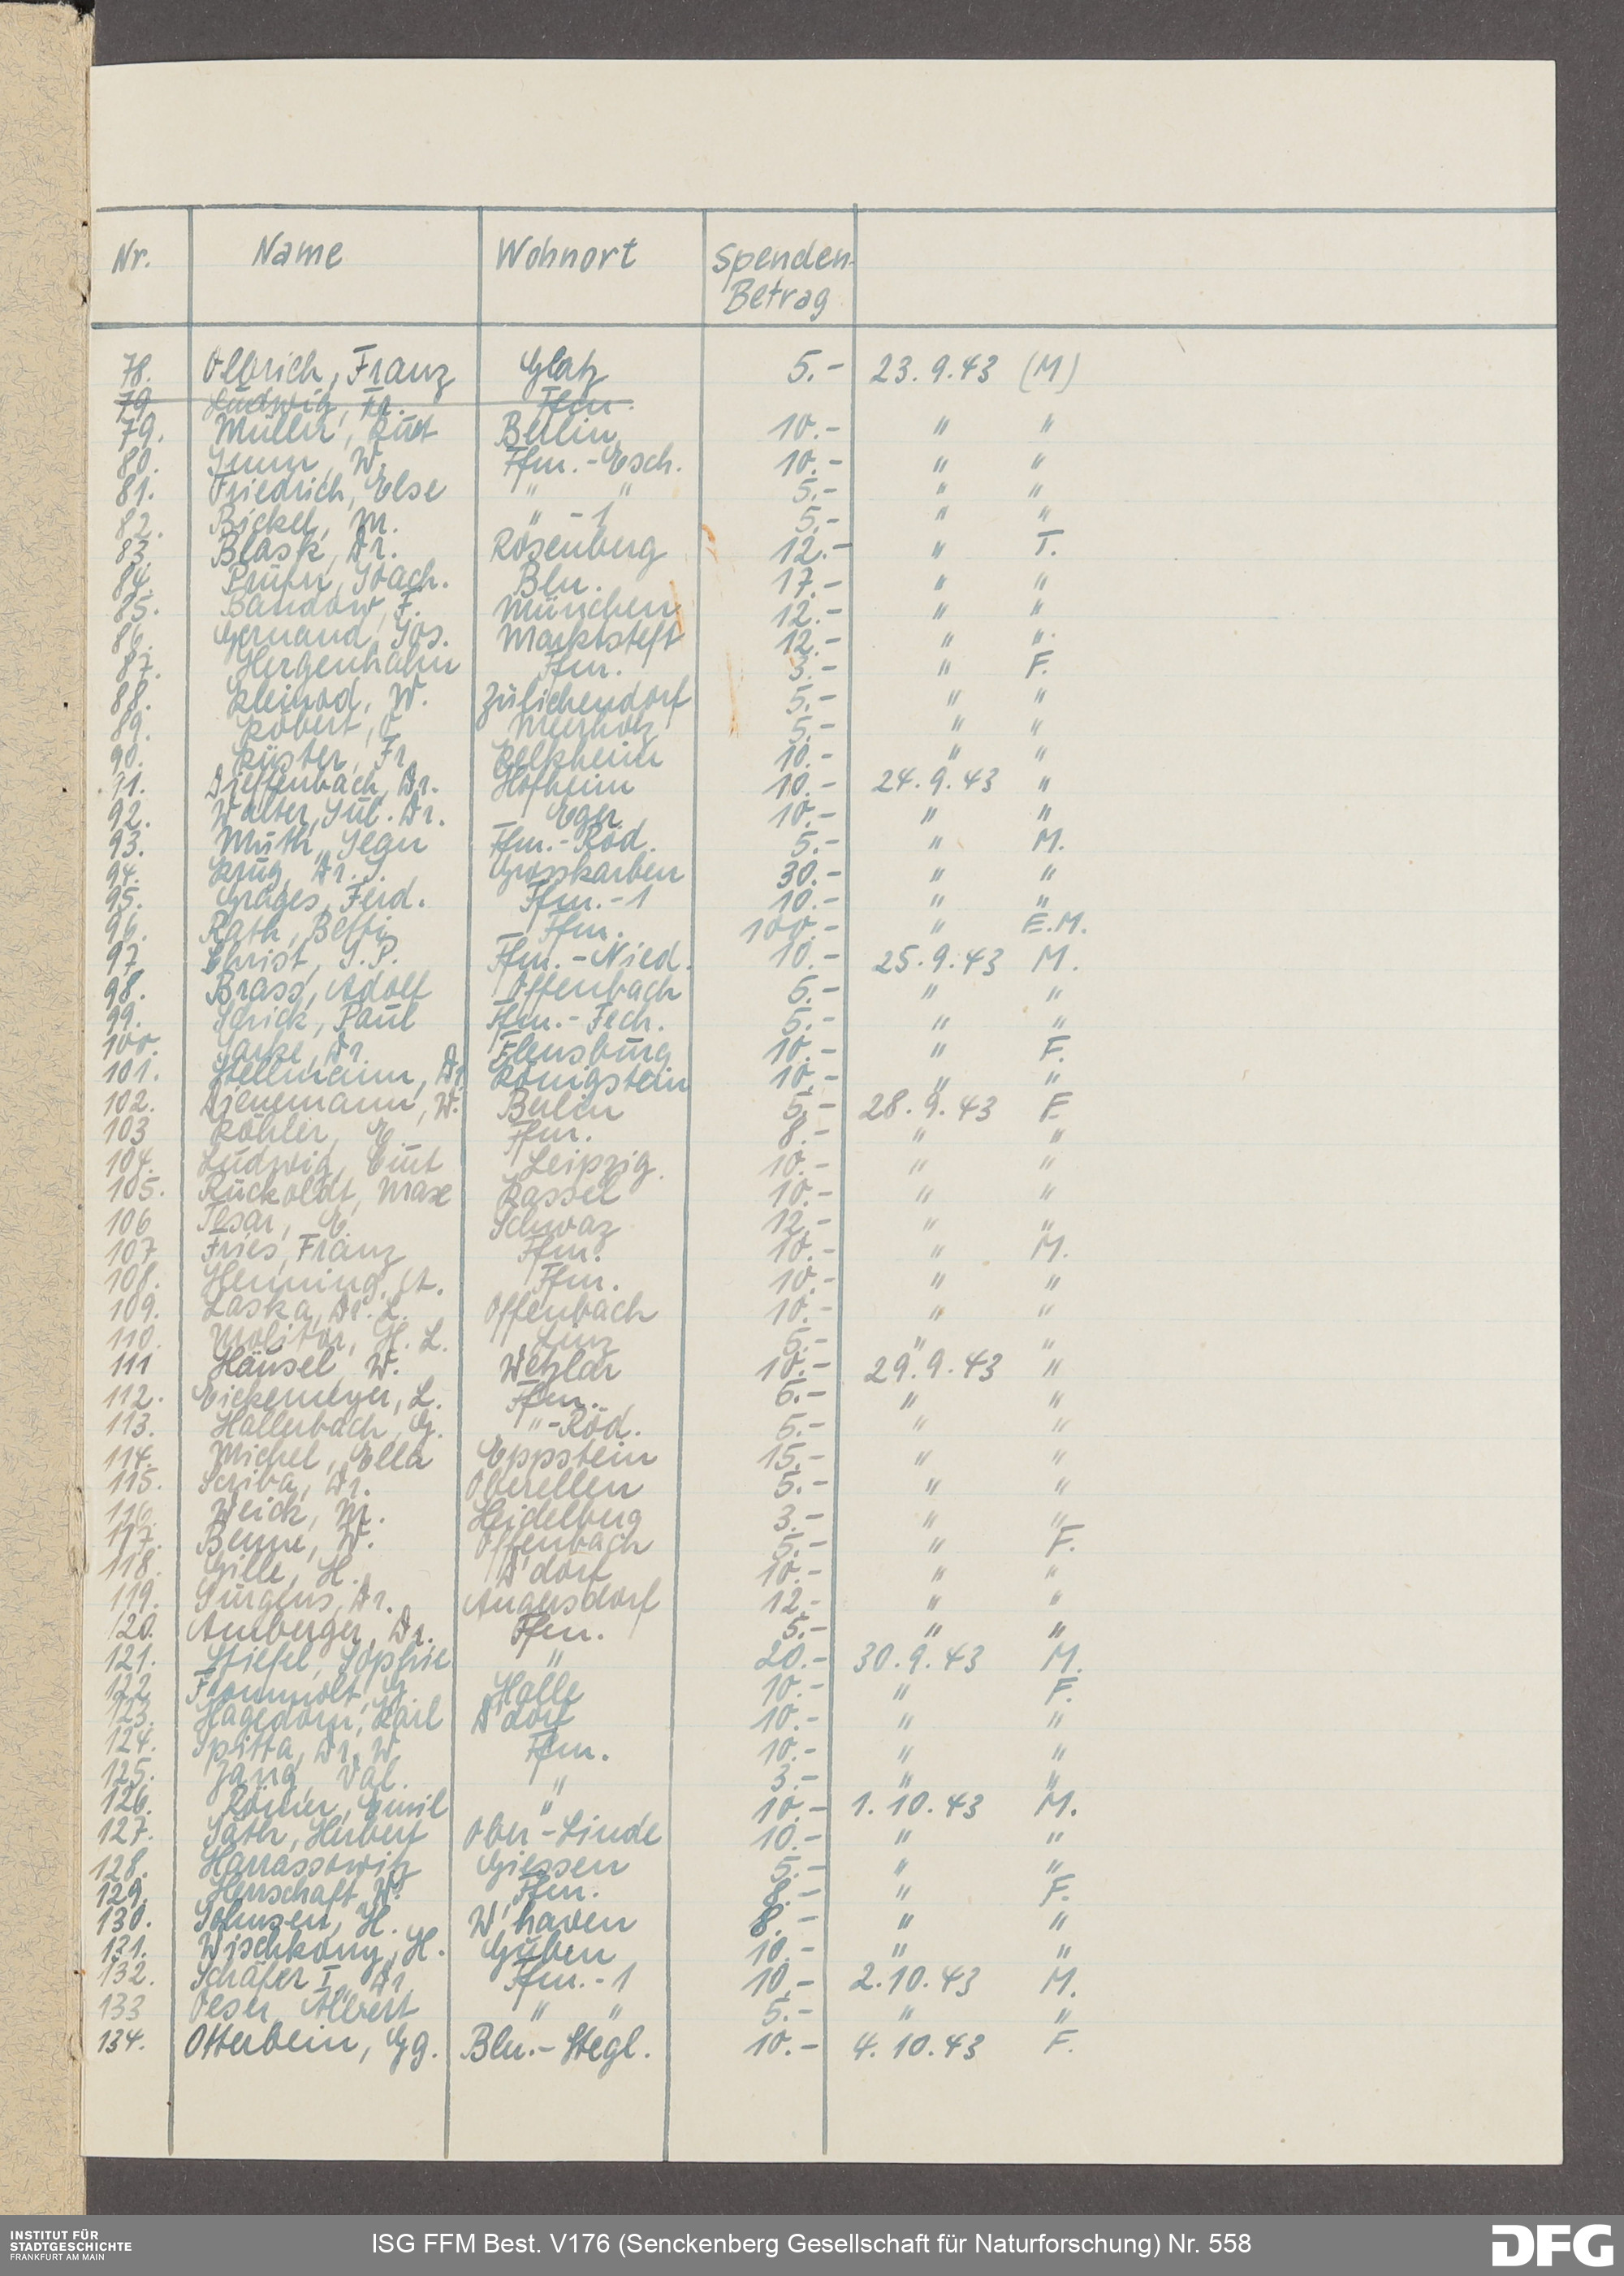 Nr. Name Wohnort Spenden-
Betrag
78. Olbrich, Franz Glatz 5.- 23.9.43 (M)
79 Ludwig, Fr. Ffm.
79. Müller, Kurt Berlin 10.- " "
80. W. Ffm.-Esch. 10.- " "
81. Friedrich, Else " " 5.- " "
82. Bickel, M. " -1 5.- " "
83. Blask, Dr. Rosenberg 12.- " T.
84. Prüfer, Joach. Bln. 17.- " "
85. Bandow, F. München 12.- " "
86. Gernand, Jos. Marktsteft 12.- " "
87. Hergenhahn Ffm. 3.- " F.
88. Kleinod, W. Zülichendorf 5.- " "
89. Kobert, O. Meerholz 5.- " "
90. Küster, Fr. Kelkheim 10.- " "
91. Dieffenbach, Dr. Hofheim 10.- 24.9.43 "
92. Walter, Jul. Dr. Eger 10.- " "
93. Muth, Jean Ffm.-Röd. 5.- " M.
94. Krug, Dr. J. Grosskarben 30.- " "
95. Gräges, Ferd. Ffm.-1 10.- " "
96. Rath, Betti Ffm. 100.- " E.M.
97 Christ, J.P. Ffm.-Nied. 10.- 25.9.43 M.
98. Brass, Adolf Offenbach 5.- " "
99. Schick, Paul Ffm.-Fech. 5.- " "
100. Dr. Flensburg 10.- " F.
101. Stellmann, Dr. Königstein 10.- " "
102. Dienemann, W. Berlin 5.- 28.9.43 F.
103 Köhler, E. Ffm. 8.- " "
104. Ludwig, Curt Leipzig 10.- " "
105. Ruckoldt, Max Kassel 10.- " "
106 Tesar, E. Schwaz 12.- " "
107 Fries, Franz Ffm. 10.- " M.
108. Henning, A. Ffm. 10.- " "
109. Laska, Dr. L. Offenbach 10.- " "
110. Molitor, H. L. Linz 5.- " "
111 Häusel, W. Wetzlar 10.- 29.9.43 "
112. Eickemeyer, L. Ffm. 5.- " "
113. Hallerbach, G. "-Röd. 5.- " "
114. Michel, Ella Eppstein 15.- " "
115. Scriba, Dr. Oberellen 5.- " "
116. Weick, M. Heidelberg 3.- " "
117. Benne, W. Offenbach 5.- " F.
118. Gille, H. D'dorf 10.- " "
119. Jürgens, Dr. Angersdorf 12.- " "
120. Amberger, Dr. Ffm. 5.- " "
121. Stiefel, Sophie " 20.- 30.9.43 M.
122 Frommolt, G. Halle 10.- " F.
123. Hagedorn, Karl D'dorf 10.- " "
124. Spitta, Dr. W. Ffm. 10.- " "
125. Jang, Val. " 3.- " "
126. Römer, Emil " 10.- 1.10.43 M.
127. Herbert Ober-Linde 10.- " "
128. Harrassowitz Giessen 5.- " "
129. Herrschaft, W. Ffm. 8.- " F.
130. Johnsen, H. W'haven 8.- " "
121. Wischkony, H. Guben 10.- " "
132. Schäfer I, Dr. Ffm.-1 10.- 2.10.43 M.
133 Oeser, Albert " " 5.- " "
134. Otterbein, Gg. Bln.-Stegl. 10.- 4.10.43 F.
INSTITUT FÜR
STADTGESCHICHTE
FRANKFURT AM MAIN
ISG FFM Best. V176 (Senckenberg Gesellschaft für Naturforschung) Nr. 558
DFG